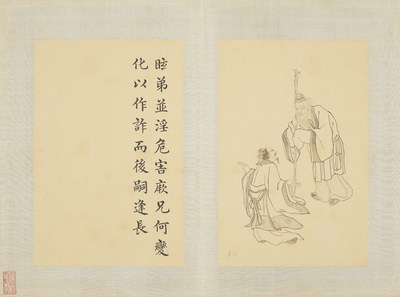 眩弟並淫危害厥兄何變
化以作詐而後嗣逢長